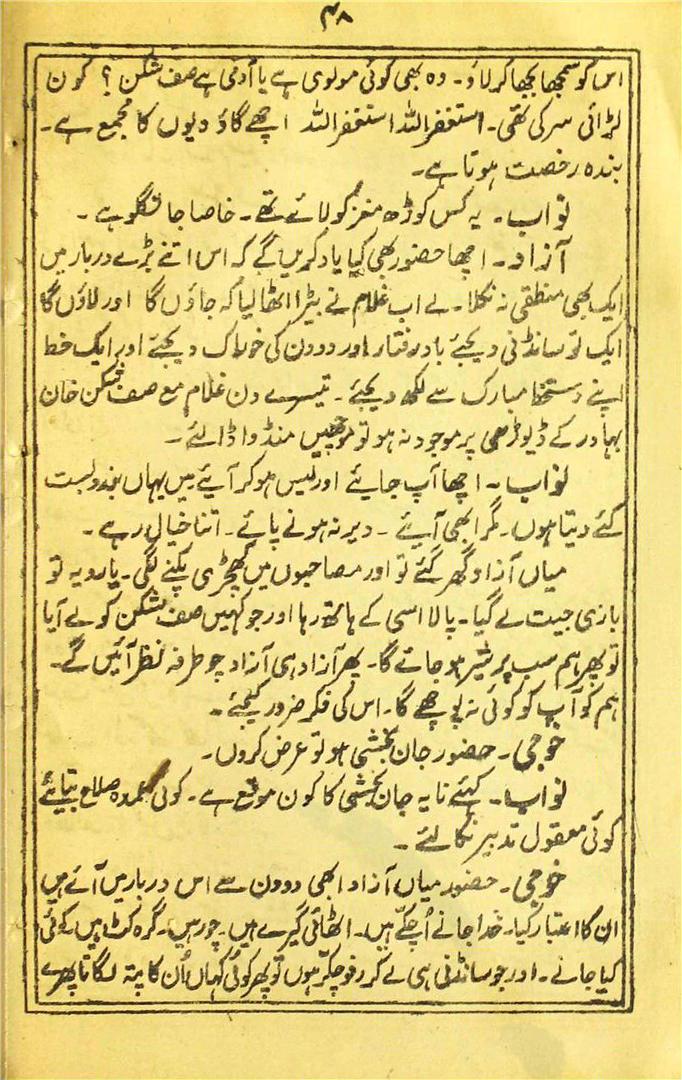 ۴۸
اس کو سمجھا بجھا کر لاؤ۔ وہ بھی کوئی مولوی ہے یا آدمی ہے صف شکن ؟ کون
لڑائی سر کی تھی۔ استغفر اللہ استغفر اللہ اچھے گاؤ دیوں کا مجمع ہے۔
بندہ رخصت ہوتا ہے۔
نواب۔ یہ کس کوڑھ مغز کو لائے تھے۔ خاصا جانگلو ہے۔
آزاد۔ اچھا حضور بھی کیا یاد کریں گے کہ اس اتنے بڑے دربار میں
ایک بھی منطقی نہ نکلا۔ لے اب غلام نے بیڑا اٹھا لیا کہ جاؤں گا اور لاؤں گا
ایک تو سانڈنی دیجئے بادرفتار اور دو دن کی خوراک دیجئے اور ایک خط
اپنے دستخط مبارک سے لکھ دیجئے۔ تیسرے دن غلام مع صف شکن خان
بہادر کے ڈیوڑھی پر موجود نہ ہو تو مونچھیں منڈوا ڈالئے۔
نواب۔ اچھا آپ جایئے اور لیس ہو کر آیئے میں یہاں بندوبست
کئے دیتا ہوں۔ مگر ابھی آیئے۔ دیر نہ ہونے پائے۔ اتنا خیال رہے۔
میاں آزاد گھر گئے تو اور مصاحبوں میں کھچڑی پکنے لگی۔ یارو یہ تو
بازی جیت لے گیا۔ پالا اسی کے ہاتھ رہا اور جو کہیں صف شکن کو لے آیا
تو پھر ہم سب پر شیر ہو جائے گا۔ پھر آزاد ہی آزاد چو طرفہ نظر آئیں گے۔
ہم کو آپ کو کوئی نہ پوچھے گا۔ اس کی فکر ضرور کیجئے۔
خوجی۔ حضور جان بخشی ہو تو عرض کروں۔
نواب۔ کہئے نا یہ جان بخشی کا کون موقع ہے۔ کوئی عمدہ صلاح بتایئے
کوئی معقول تدبیر نکالئے۔
خوجی۔ حضور میاں آزاد ابھی دو دن سے اس دربار میں آئے ہیں
ان کا اعتبار کیا۔ خدا جانے اُچکے ہیں۔ اٹھائی گیرے ہیں۔ چور ہیں۔ گرہ کٹ ہیں۔ کوئی
کیا جانے۔ اور جو سانڈنی ہی لے کر رفو چکر ہوں تو پھر کوئی کہاں اُن کا پتہ لگاتا پھرے